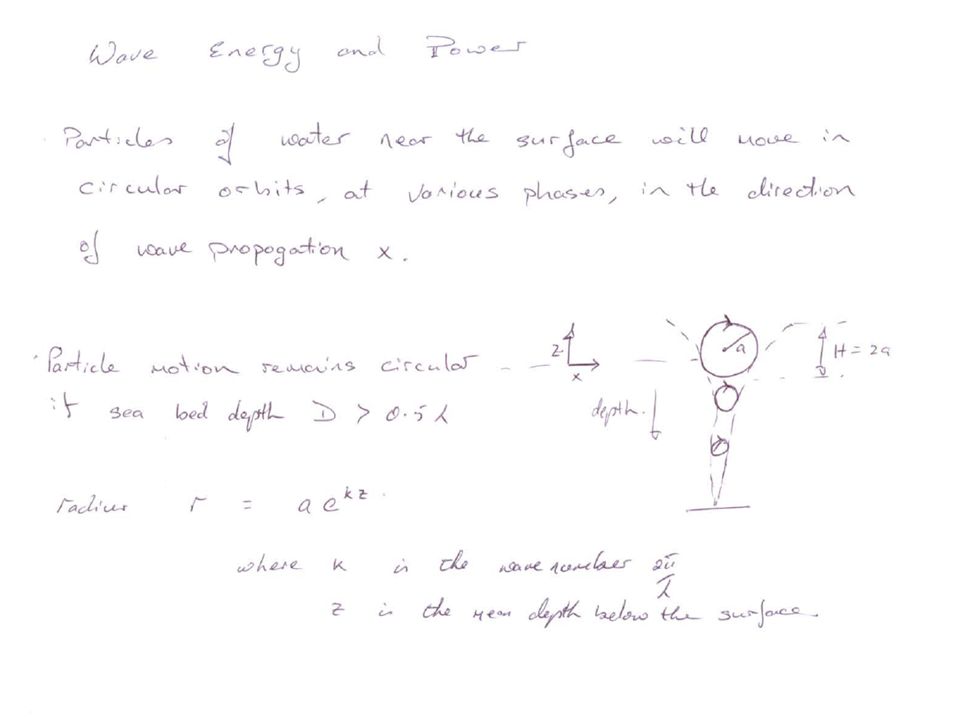 Wave Energy and Power
· Particles of water near the surface will move in
circular orbits, at various phases, in the direction
of wave propogation x.
· Particle motion remains circular
if sea bed depth D > 0.5 λ
z
x
depth.
a
H = 2a
radius r = a e^kz.
where k is the wave number 2π/λ
z is the mean depth below the surface.